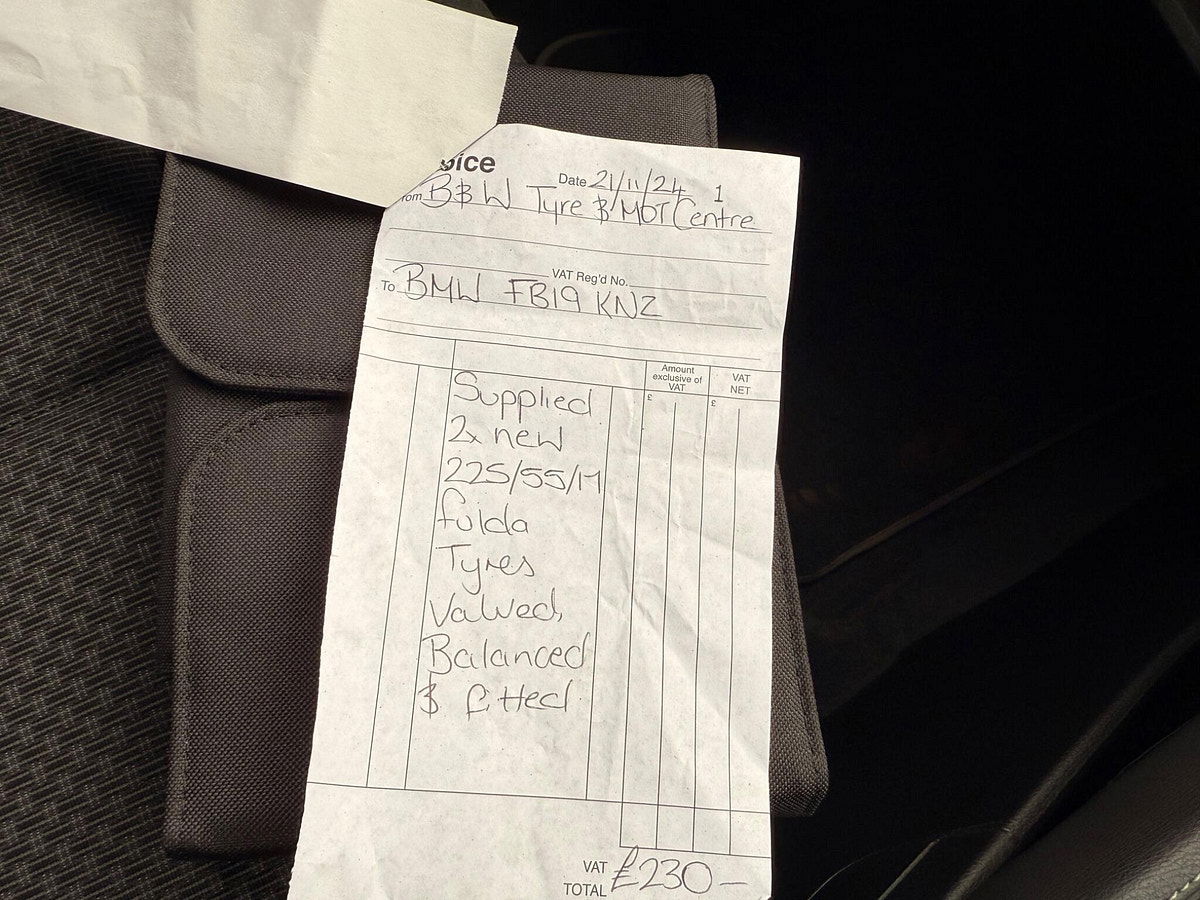 oice
Date 21/11/24 1
rom B&W Tyre & MOT Centre
VAT Reg'd No.
To BMW FB19 KNZ
Amount exclusive of VAT
VAT NET
£ £
Supplied
2x new
225/55/17
fulda
Tyres
Valved,
Balanced
& fitted
VAT
TOTAL £230—